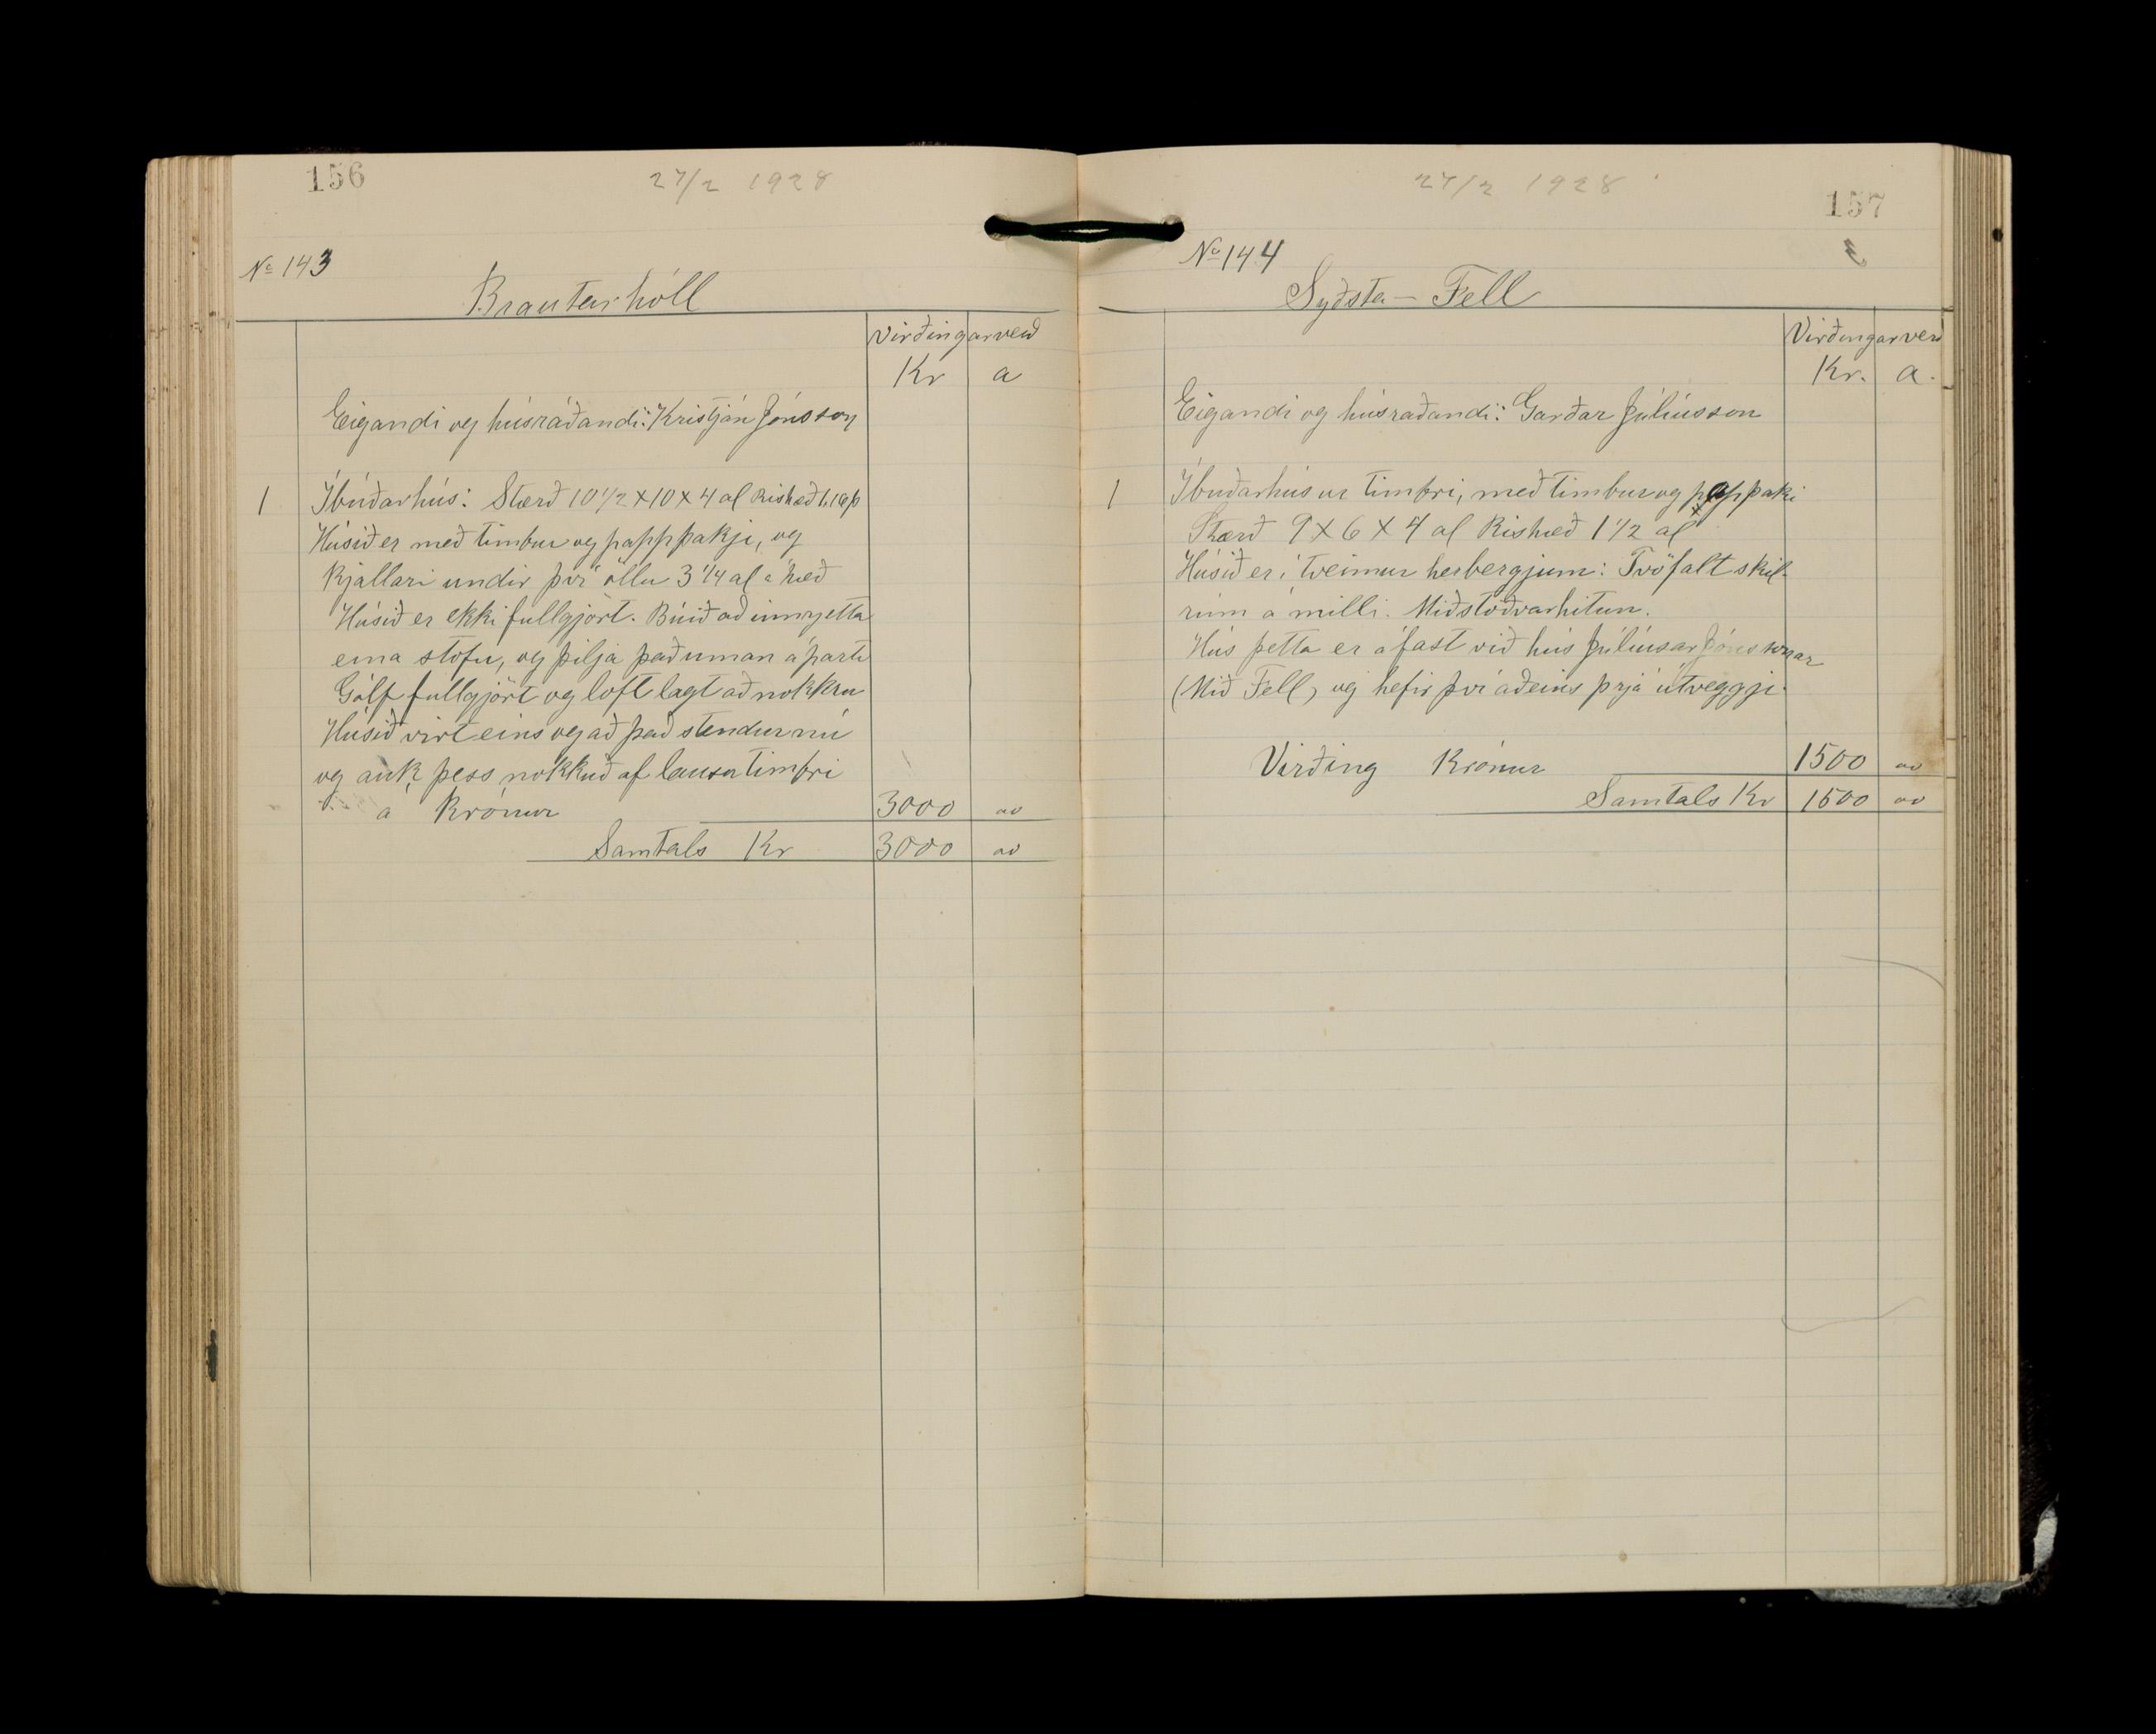 156
27/2 1928
№ 143
Brautarhóll
Virðingarverð
Kr a
Eigandi og húsráðandi: Kristján Jónsson
1 Íbúðarhús: Stærð 10 1/2 x 10 x 4 al Rishæð
Húsið er með timbur og papp þakji, og
Kjallari undir því öllu 3 1/4 al á hæð
Húsið er ekki fullgjört. Búið að innrjetta
eina stofu, og þilja það uman á parti
Gólf fullgjört og loft lagt að nokkru
Húsið virt eins og að það stendur nú
og auk þess nokkuð af lausa timbri
á Krónur 3000 00
Samtals Kr 3000 00
27/2 1928
157
№ 144
Syðsta - Fell
Virðingarverð
Kr. a.
Eigandi og húsraðandi: Garðar Júlíusson
1 Íbuðarhús ur timbri, með timbur og papp þaki
Stærð 9 x 6 x 4 al Rishæð 1 1/2 al
Húsið er í tveimur herbergjum: Tvöfalt skil-
rúm á milli. Miðstöðvarhitun.
Hús þetta er áfast við hús Júlíusar Jónssonar
(Mið Fell) og hefir því aðeins þrjá útveggji.
Virðing Krónur 1500 00
Samtals Kr 1500 00